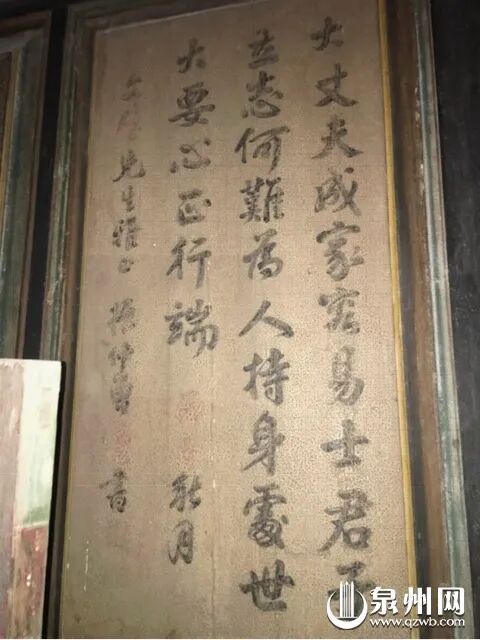 大丈夫成家容易士君子
立志何難為人持身處世
大要心正行端
秋月
先生雅
書
泉州网
www.qzwb.com